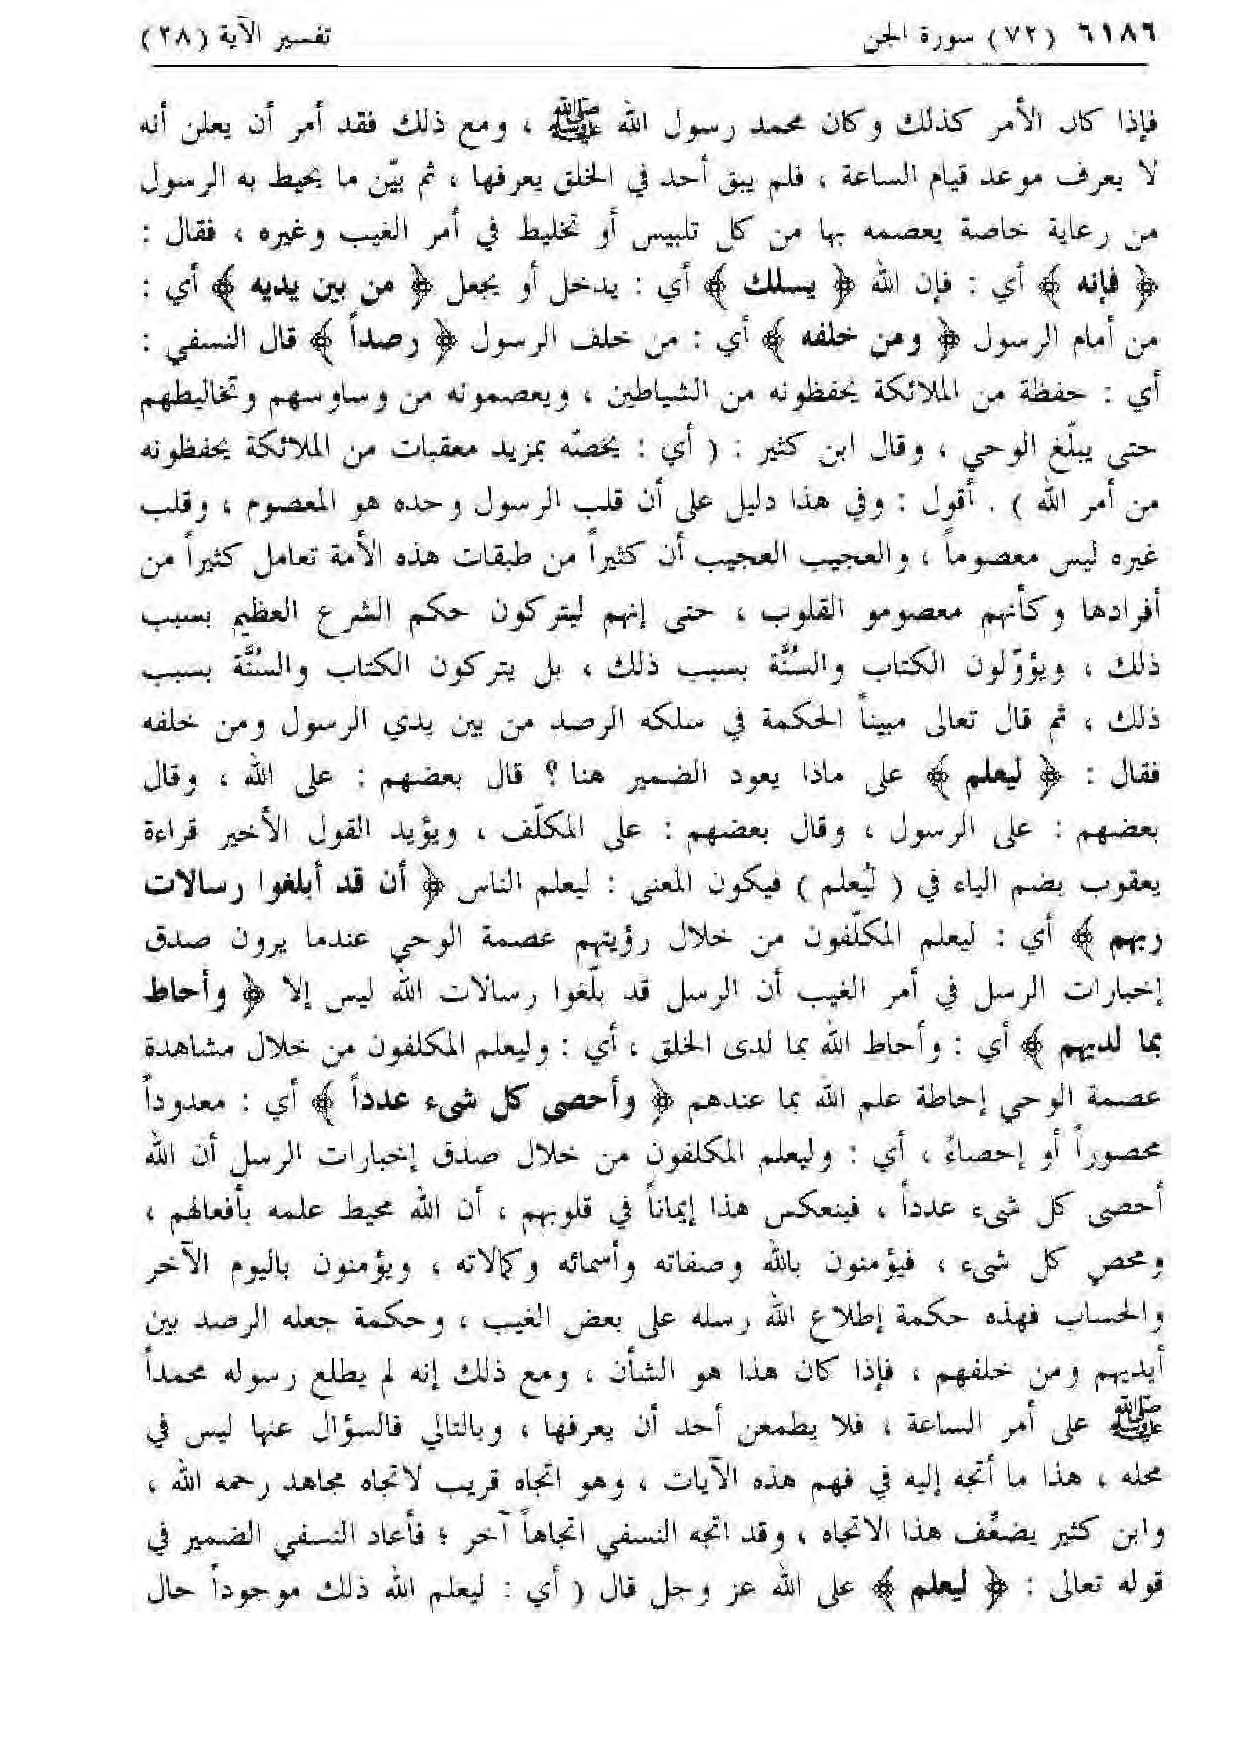 ٦١٨٦ (٧٢) سورة الجن تفسير الآية (٢٨)
فإذا كان الأمر كذلك وكان محمد رسول الله ﷺ ، ومع ذلك فقد أمر أن يعلن أنه
لا يعرف موعد قيام الساعة ، فلم يبق أحد في الخلق يعرفها ، ثم بيّن ما يحيط به الرسول
من رعاية خاصة يعصمه بها من كل تلبيس أو تخليط في أمر الغيب وغيره ، فقال :
﴿ فإنه ﴾ أي : فإن الله ﴿ يسلك ﴾ أي : يدخل أو يجعل ﴿ من بين يديه ﴾ أي :
من أمام الرسول ﴿ ومن خلفه ﴾ أي : من خلف الرسول ﴿ رصداً ﴾ قال النسفي :
أي : حفظة من الملائكة يحفظونه من الشياطين ، ويعصمونه من وساوسهم وتخاليطهم
حتى يبلّغ الوحي ، وقال ابن كثير : ( أي : يخصّه بمزيد معقبات من الملائكة يحفظونه
من أمر الله ) . أقول : وفي هذا دليل على أن قلب الرسول وحده هو المعصوم ، وقلب
غيره ليس معصوماً ، والعجيب العجيب أن كثيراً من طبقات هذه الأمة تعامل كثيراً من
أفرادها وكأنهم معصومو القلوب ، حتى إنهم ليتركون حكم الشرع العظيم بسبب
ذلك ، ويؤوّلون الكتاب والسُّنَّة بسبب ذلك ، بل يتركون الكتاب والسُّنَّة بسبب
ذلك ، ثم قال تعالى مبيناً الحكمة في سلكه الرصد من بين يدي الرسول ومن خلفه
فقال : ﴿ ليعلم ﴾ على ماذا يعود الضمير هنا ؟ قال بعضهم : على الله ، وقال
بعضهم : على الرسول ، وقال بعضهم : على المكلّف ، ويؤيد القول الأخير قراءة
يعقوب بضم الياء في ( ليُعلم ) فيكون المعنى : ليعلم الناس ﴿ أن قد أبلغوا رسالات
ربهم ﴾ أي : ليعلم المكلّفون من خلال رؤيتهم عصمة الوحي عندما يرون صدق
إخبارات الرسل في أمر الغيب أن الرسل قد بلّغوا رسالات الله ليس إلا ﴿ وأحاط
بما لديهم ﴾ أي : وأحاط الله بما لدى الخلق ، أي : وليعلم المكلفون من خلال مشاهدة
عصمة الوحي إحاطة علم الله بما عندهم ﴿ وأحصى كل شيء عدداً ﴾ أي : معدوداً
محصوراً أو إحصاءً ، أي : وليعلم المكلفون من خلال صدق إخبارات الرسل أن الله
أحصى كل شيء عدداً ، فينعكس هذا إيماناً في قلوبهم ، أن الله محيط علمه بأفعالهم ،
ومحص كل شيء ، فيؤمنون بالله وصفاته وأسمائه وكمالاته ، ويؤمنون باليوم الآخر
والحساب فهذه حكمة إطلاع الله رسله على بعض الغيب ، وحكمة جعله الرصد بين
أيديهم ومن خلفهم ، فإذا كان هذا هو الشأن ، ومع ذلك إنه لم يطلع رسوله محمداً
ﷺ على أمر الساعة ، فلا يطمعن أحد أن يعرفها ، وبالتالي فالسؤال عنها ليس في
محله ، هذا ما أتجه إليه في فهم هذه الآيات ، وهو اتجاه قريب لاتجاه مجاهد رحمه الله ،
وابن كثير يضعّف هذا الاتجاه ، وقد اتجه النسفي اتجاهاً آخر ؛ فأعاد النسفي الضمير في
قوله تعالى : ﴿ ليعلم ﴾ على الله عز وجل قال ( أي : ليعلم الله ذلك موجوداً حال